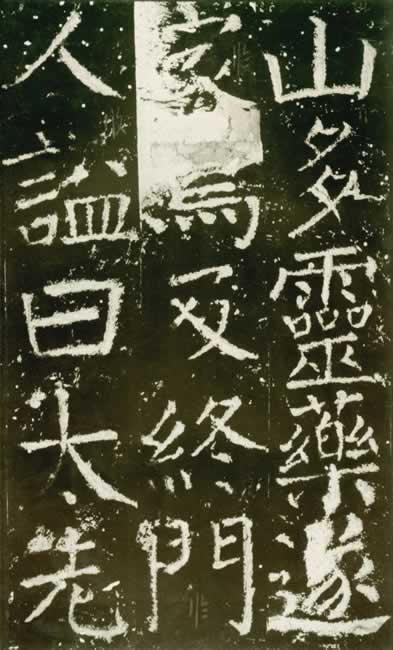 山多靈藥遂
家焉及終門
人謚曰太先